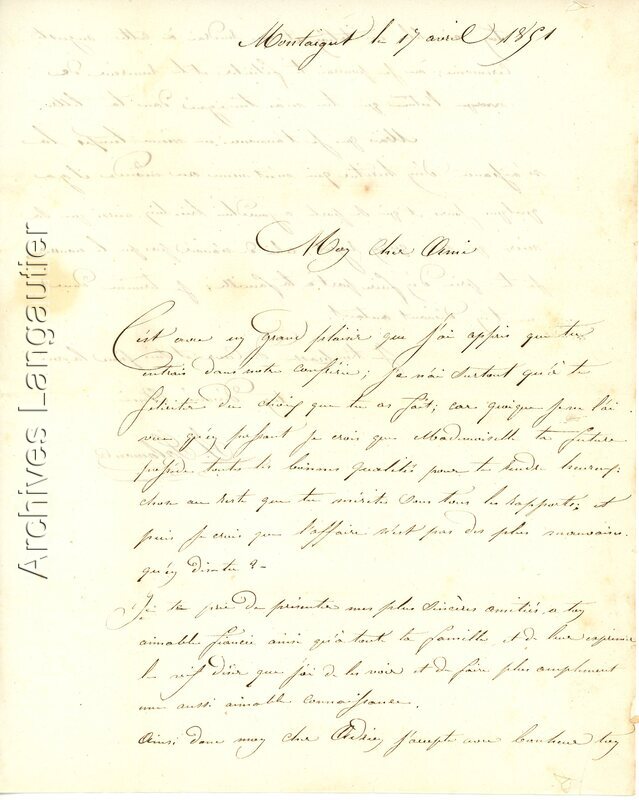 Montaigut le 17 avril 1851
Mon cher Ami
C'est avec un Grand plaisir que j'ai appris que tu
entrais dans notre confrérie; Je n'ai surtout qu'à te
féliciter du choix que tu as fait; car quoique je ne l'ai
vue qu'en passant je crois que Mademoiselle ta future
possède toutes les bonnes qualités pour te rendre heureux,
chose au reste que tu mérites sous tous les rapports; et
puis je crois que l'affaire n'est pas des plus mauvaises.
qu'en dis tu ? -
Je te prie de présenter mes plus sincères amitiés, a ton
aimable fiancée ainsi qu'à toute ta famille et de leur exprimer
le vif désir que j'ai de les voir et de faire plus amplement
une aussi aimable connaissance.
Ainsi donc mon cher Adrien j'accepte avec bonheur ton
Archives Langautier